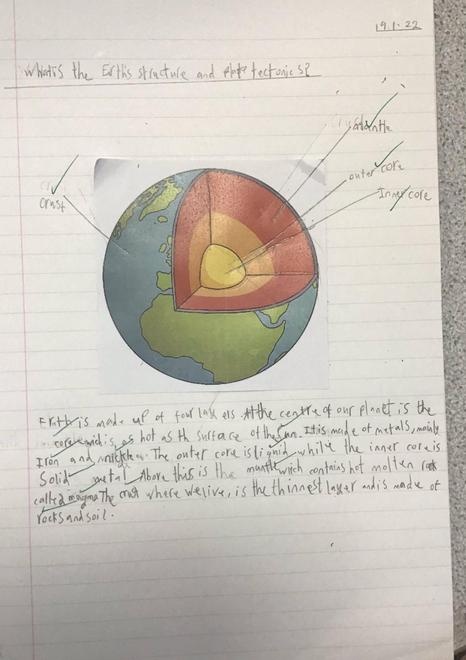 19.1.22
What is the Erth's structure and plate tectonics?
Mantle
outer core
Inner core
Crust
Erath is made up of four layers. At the centre of our planet is the
core wich is as hot as th surface of the Sun. It is made of metals, mainly
Iron and . The outer core is liquid while the inner core is
Solid metal. Above this is the mantle wich contains hot molten rock
called magma The crust where we live, is the thinnest layer and is made of
rocks and soil.